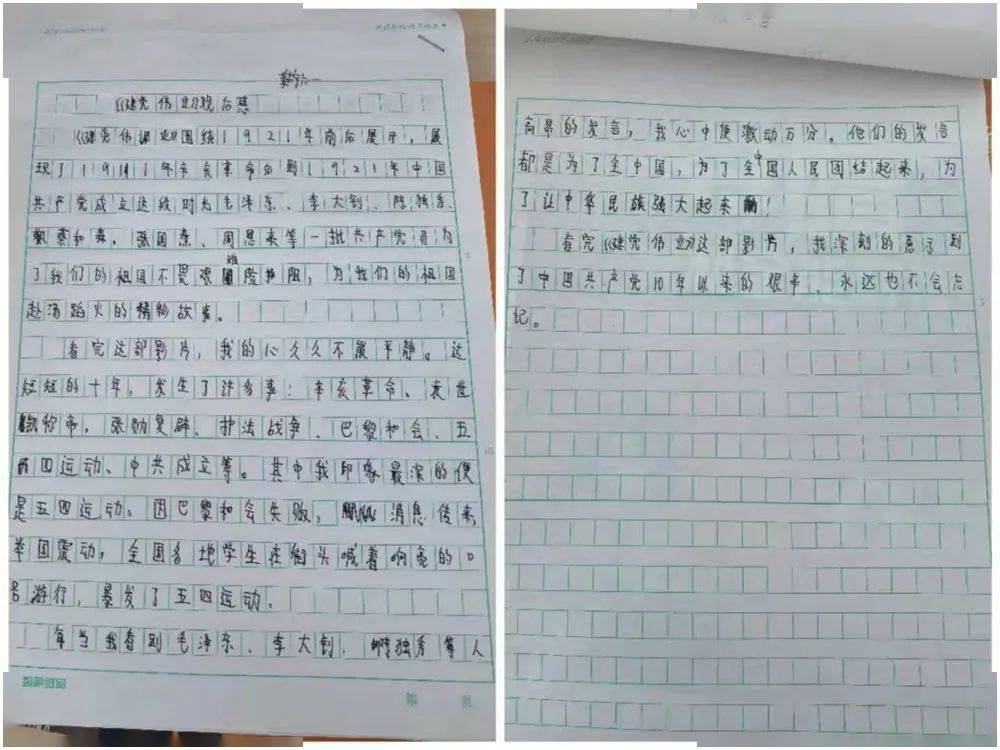 《建党伟业》观后感
《建党伟业》围绕1921年前后展示，展
现了1911年辛亥革命后到1921年中国
共产党成立这段时光毛泽东、李大钊、陈独秀、
蔡和森、张国焘、周恩来等一批共产党员为
了我们的祖国不畏艰难险阻，为我们的祖国
赴汤蹈火的精彩故事。
看完这部影片，我的心久久不能平静。这
短短的十年，发生了许多事：辛亥革命、袁世
凯称帝，张勋复辟、护法战争、巴黎和会、五
四运动、中共成立等。其中我印象最深的便
是五四运动。因巴黎和会失败，消息传来，
举国震动，全国各地学生在街头喊着响亮的口
号游行，暴发了五四运动。
每当我看到毛泽东、李大钊、陈独秀等人
第 页
向昂的发言，我心中便激动万分。他们的发言
都是为了全中国，为了全中国人民团结起来，为
了让中华民族强大起来！
看完《建党伟业》这部影片，我深刻的意示到
了中国共产党10年以来的很辛，永远也不会忘
记。